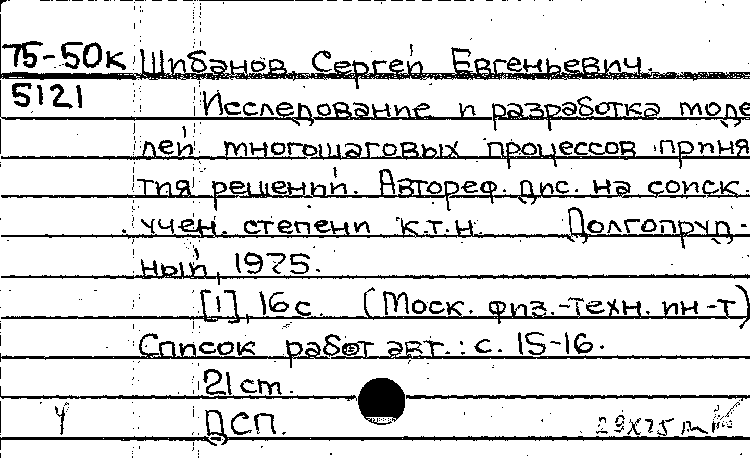 75-50к Шибанов, Сергей Евгеньевич.
5121 Исследование и разработка моде
лей многошаговых процессов приня
тия решений. Автореф. дис. на соиск.
учен. степени к.т.н. Долгопруд-
ный, 1975.
[1], 16 с. (Моск. физ.-техн. ин-т)
Список работ авт.: с. 15-16.
21 cm.
ДСП.